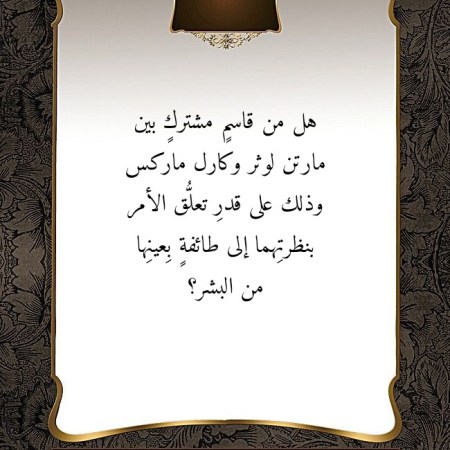 هل من قاسمٍ مشتركٍ بين
مارتن لوثر وكارل ماركس
وذلك على قدرِ تعلُّق الأمر
بنظرتِهما إلى طائفةٍ بِعينِها
من البشر؟